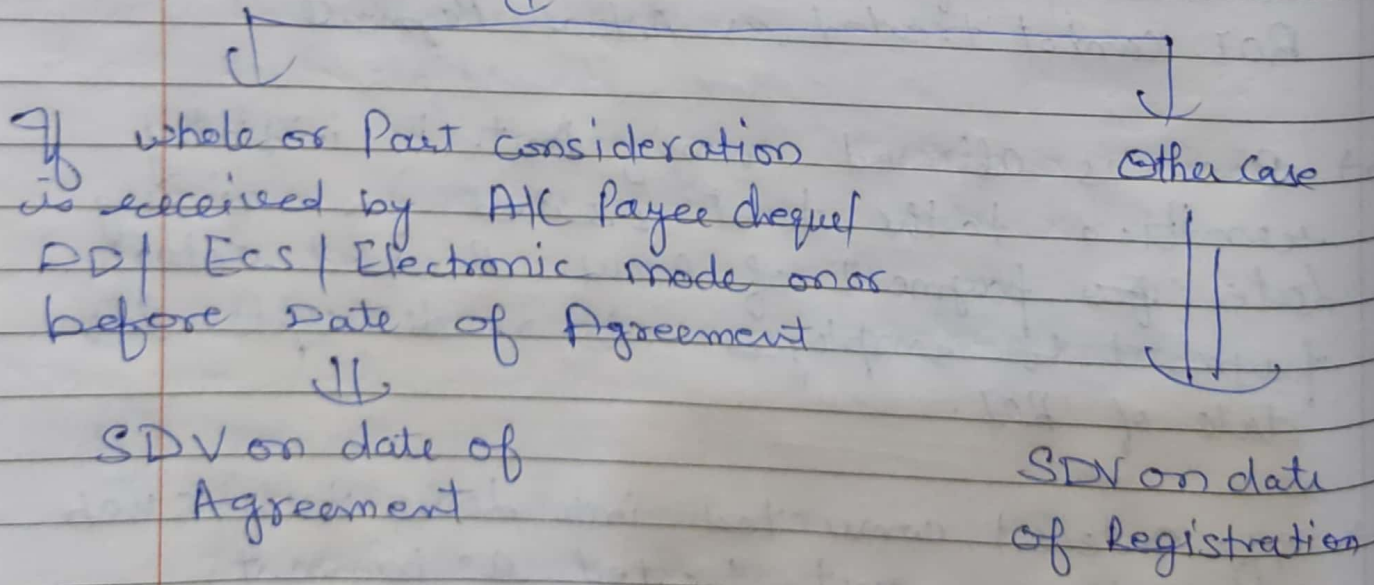 If whole or Part consideration
is received by A/C Payee cheque/
DD/ Ecs/ Electronic mode on or
before Date of Agreement
SDV on date of
Agreement
Other Case
SDV on date
of Registration